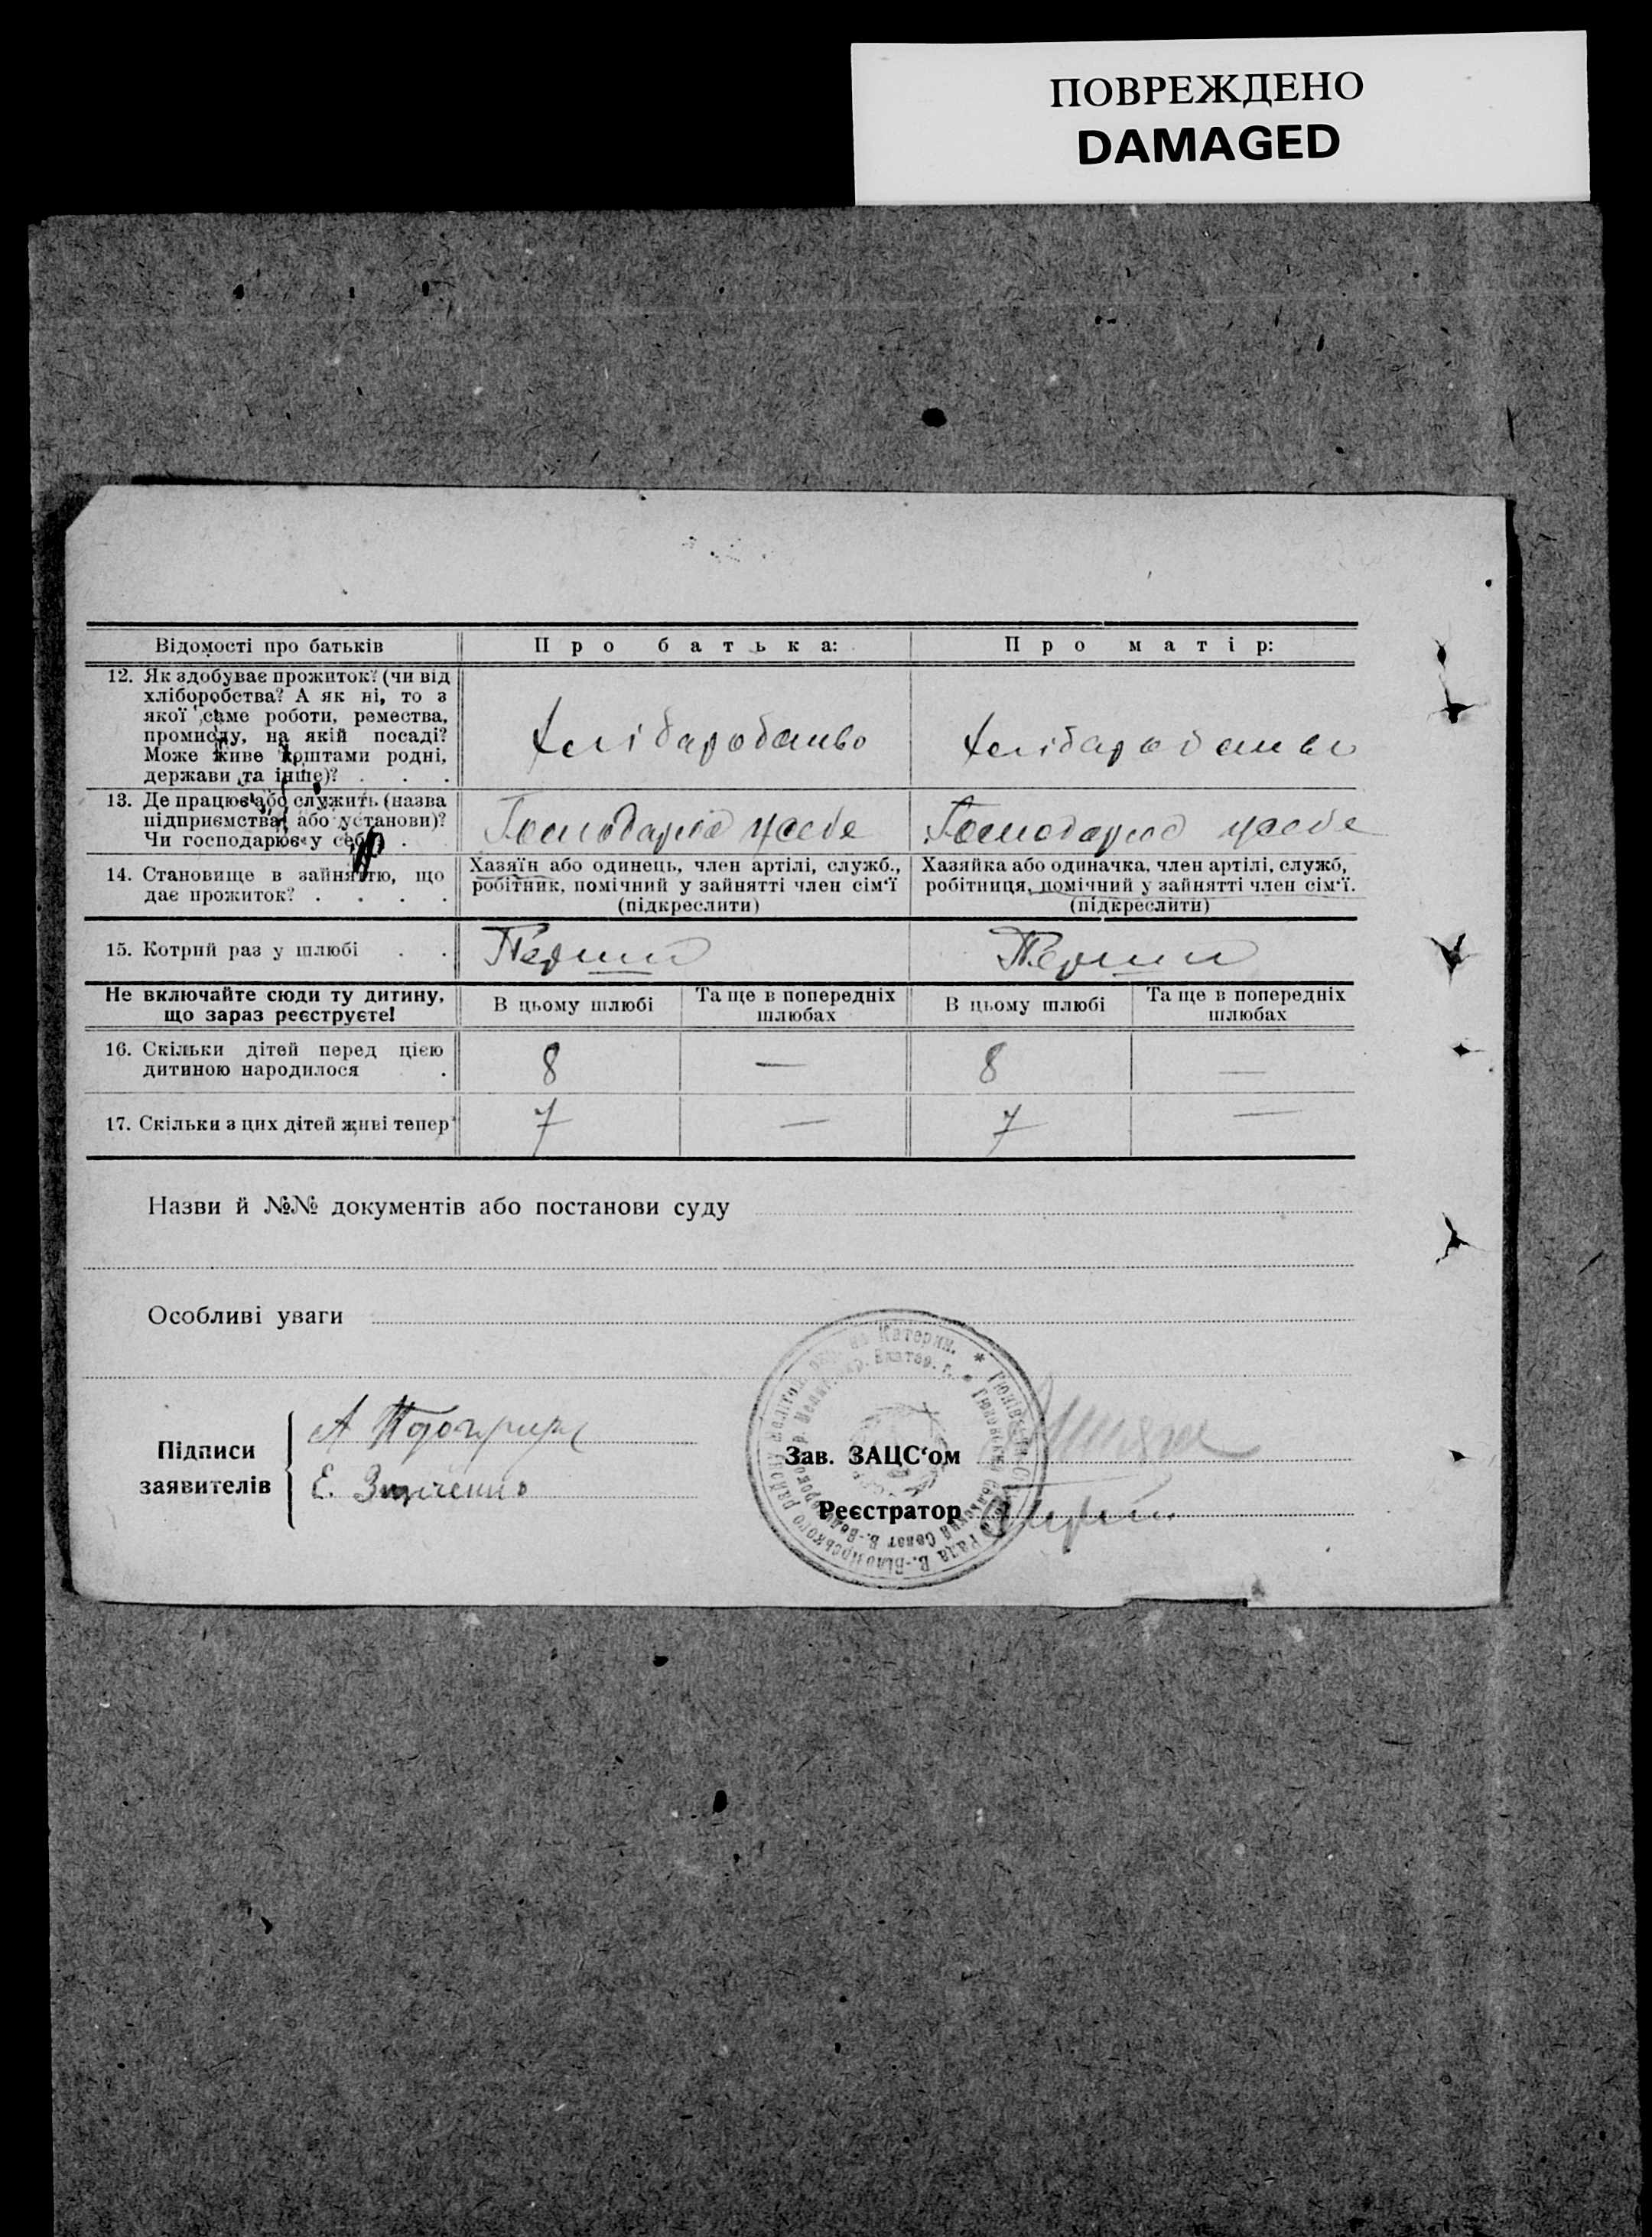 ПОВРЕЖДЕНО
DAMAGED
Відомості про батьків
Про батька:
Про матір:
12. Як здобуває прожиток? (чи від
хліборобства? А як ні, то з
якої саме роботи, ремества,
промислу, на якій посаді?
Може живе коштами родні,
держави та інше)? . . .
Хлібаробство
Хлібаробство
13. Де працює або служить (назва
підприємства або установи)?
Чи господарює у себе? .
Господарює у себе
Господарює у себе
14. Становище в зайняттю, що
дає прожиток? . . . .
Хазяїн або одинець, член артілі, служб.,
робітник, помічний у зайнятті член сім'ї
(підкреслити)
Хазяйка або одиначка, член артілі, служб,
робітниця, помічний у зайнятті член сім'ї.
(підкреслити)
15. Котрий раз у шлюбі . .
Перший
Перший
Не включайте сюди ту дитину,
що зараз реєструєте!
В цьому шлюбі
Та ще в попередніх
шлюбах
В цьому шлюбі
Та ще в попередніх
шлюбах
16. Скільки дітей перед цією
дитиною народилося .
8
—
8
—
17. Скільки з цих дітей живі тепер
7
—
7
—
Назви й №№ документів або постанови суду
Особливі уваги
Підписи
заявителів
А
Е.
Зав. ЗАЦС'ом
Реєстратор
на Катерин.
Рада В.-Білозірського району